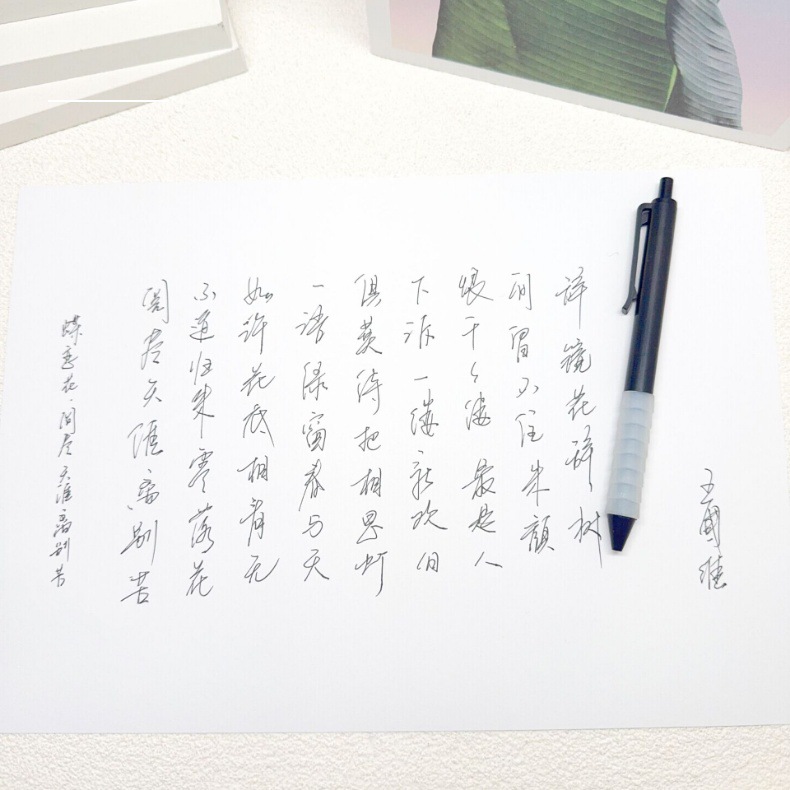 蝶恋花·阅尽天涯离别苦
阅尽天涯离别苦
不道归来零落花
如许花底相看无
一语绿窗春与天
俱莫待把相思灯
下诉一缕新欢旧
恨千々缕最是人
间留不住朱颜
辞镜花辞树
王国维